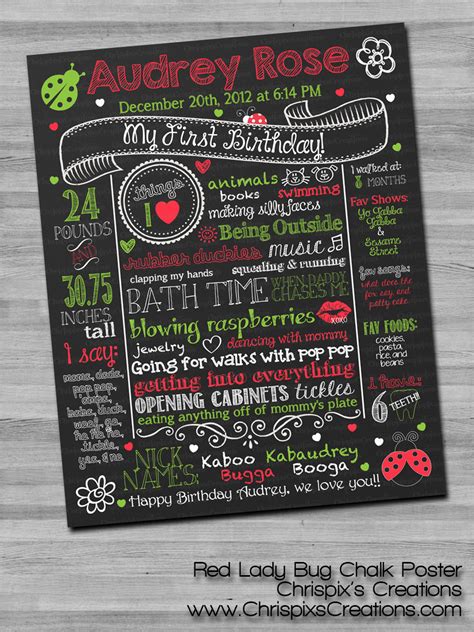 Audrey Rose
December 20th, 2012 at 6:14 PM
My First Birthday!
24
POUNDS
AND
30.75
INCHES
tall
I say:
mama, dada,
things
I
animals
books
swimming
making silly faces
Being Outside
rubber duckies
music
clapping my hands
squealing & running
BATH TIME
WHEN DADDY
CHASES ME
blowing raspberries
XOXO
jewelry
dancing with mommy
Going for walks with pop pop
getting into everything
OPENING CABINETS
tickles
eating anything off of mommy's plate
I walked at
MONTHS
Fav Shows:
Yo Gabba
Gabba
&
Sesame
Street
fav songs:
what does the
fox say and
patty cake
FAV FOODS:
cookies,
pasta,
rice, and
beans
I have:
6
TEETH!
NICK
NAMES:
Kaboo
Kabaudrey
Bugga
Booga
Happy Birthday Audrey, we love you!!
Red Lady Bug Chalk Poster
Chrispix's Creations
www.ChrispixsCreations.com